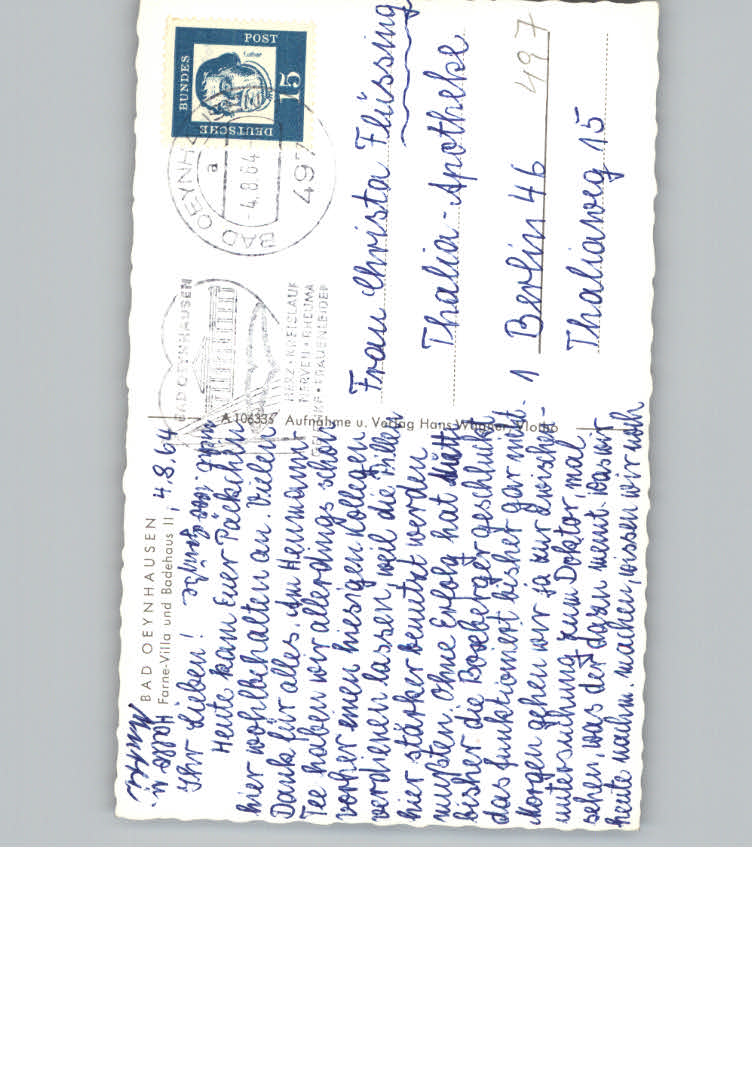 BAD OEYNHAUSEN
Farne-Villa und Badehaus II, 4.8.64
Ihr Lieben!
Heute kam Euer Päckchen
hier wohlbehalten an. Vielen
Dank für alles. Den Heumann-
Tee haben wir allerdings schon
vorher einen hiesigen Kollegen
verdienen lassen, weil die Pillen
hier stärker benutzt werden
mußten. Ohne Erfolg hat Mutti
bisher die Boxberger geschluckt,
das funktioniert bisher gar nicht.
Morgen gehen wir ja zur Zwischen-
untersuchung zum Doktor, mal
sehen, was der dazu meint. Was wir
heute nachm. machen, wissen wir noch
nicht. 1000 Grüße
A 106335 Aufnahme u. Verlag Hans Wagner, Vlotho
DEUTSCHE
BUNDES
POST
15
Luther
497
BAD OEYNH
a
-4.8.64
BAD OEYNHAUSEN
HERZ · KREISLAUF
NERVEN · RHEUMA
GELENKE · FRAUENLEIDEN
Frau Christa Flüssing
Thalia-Apotheke
1 Berlin 46
497
Thaliaweg 15